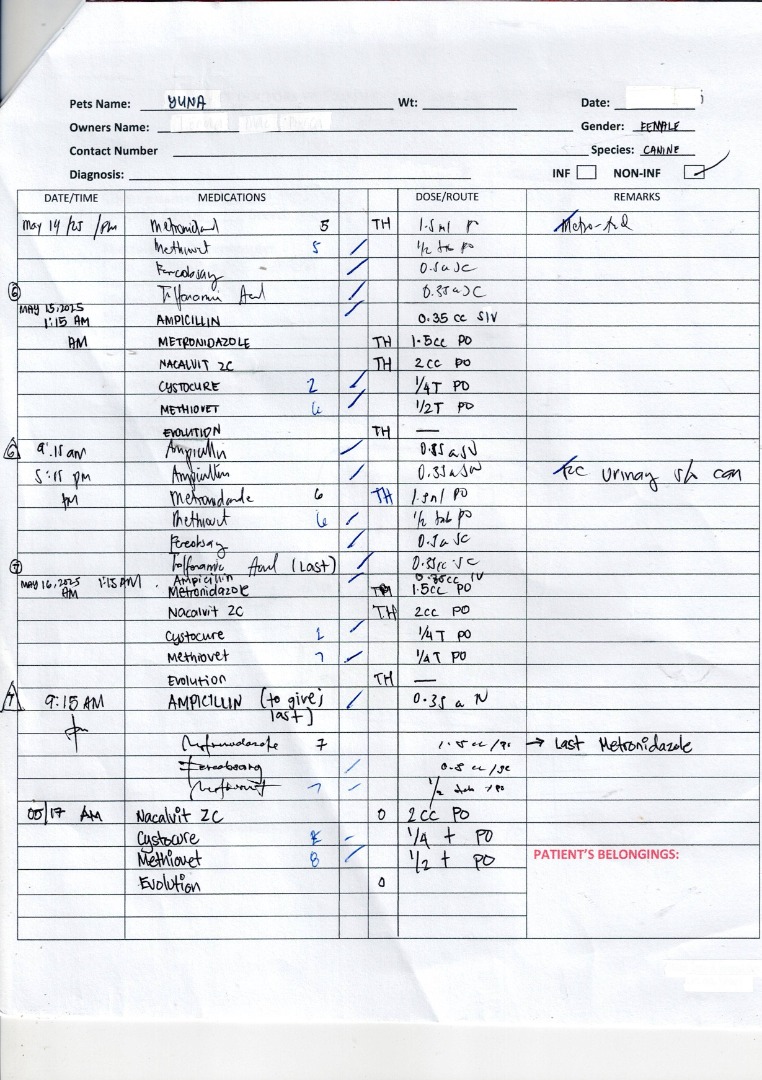 Pets Name: YUNA Wt: Date:
Owners Name: Gender: FEMALE
Contact Number Species: CANINE
Diagnosis: INF NON-INF
DATE/TIME MEDICATIONS DOSE/ROUTE REMARKS
May 14/25 /pm 5 TH 1.5ml
Methiovet 5 1/2 tab po
0.5 SC
6 0.35 SC
MAY 15, 2025
1:15 AM AMPICILLIN 0.35 cc SIV
AM METRONIDAZOLE TH 1.5cc PO
NACALVIT 2C TH 2cc PO
CYSTOCURE 2 1/4T PO
METHIOVET 6 1/2T PO
EVOLUTION TH —
6 9:15 am Ampicillin 0.35
5:15 pm Ampicillin 0.35
pm 6 TH PO
Methiovet 6 1/2 tab po
SC
7 (Last) 0.35cc SC
MAY 16, 2025 1:15 AM Ampicillin 0.35cc IV
AM Metronidazole TH 1.5cc PO
Nacalvit 2C TH 2cc PO
Cystocure 1/4T PO
Methiovet 7 1/4T PO
Evolution TH —
7 9:15 AM AMPICILLIN (to give; last) 0.35
7 1.5 cc/po → Last Metronidazole
0.5 cc/sc
7 1/2 tab po
05/17 AM Nacalvit 2C 0 2cc PO
Cystocure 1/4 t PO
Methiovet 8 1/2 t PO
PATIENT'S BELONGINGS:
Evolution 0